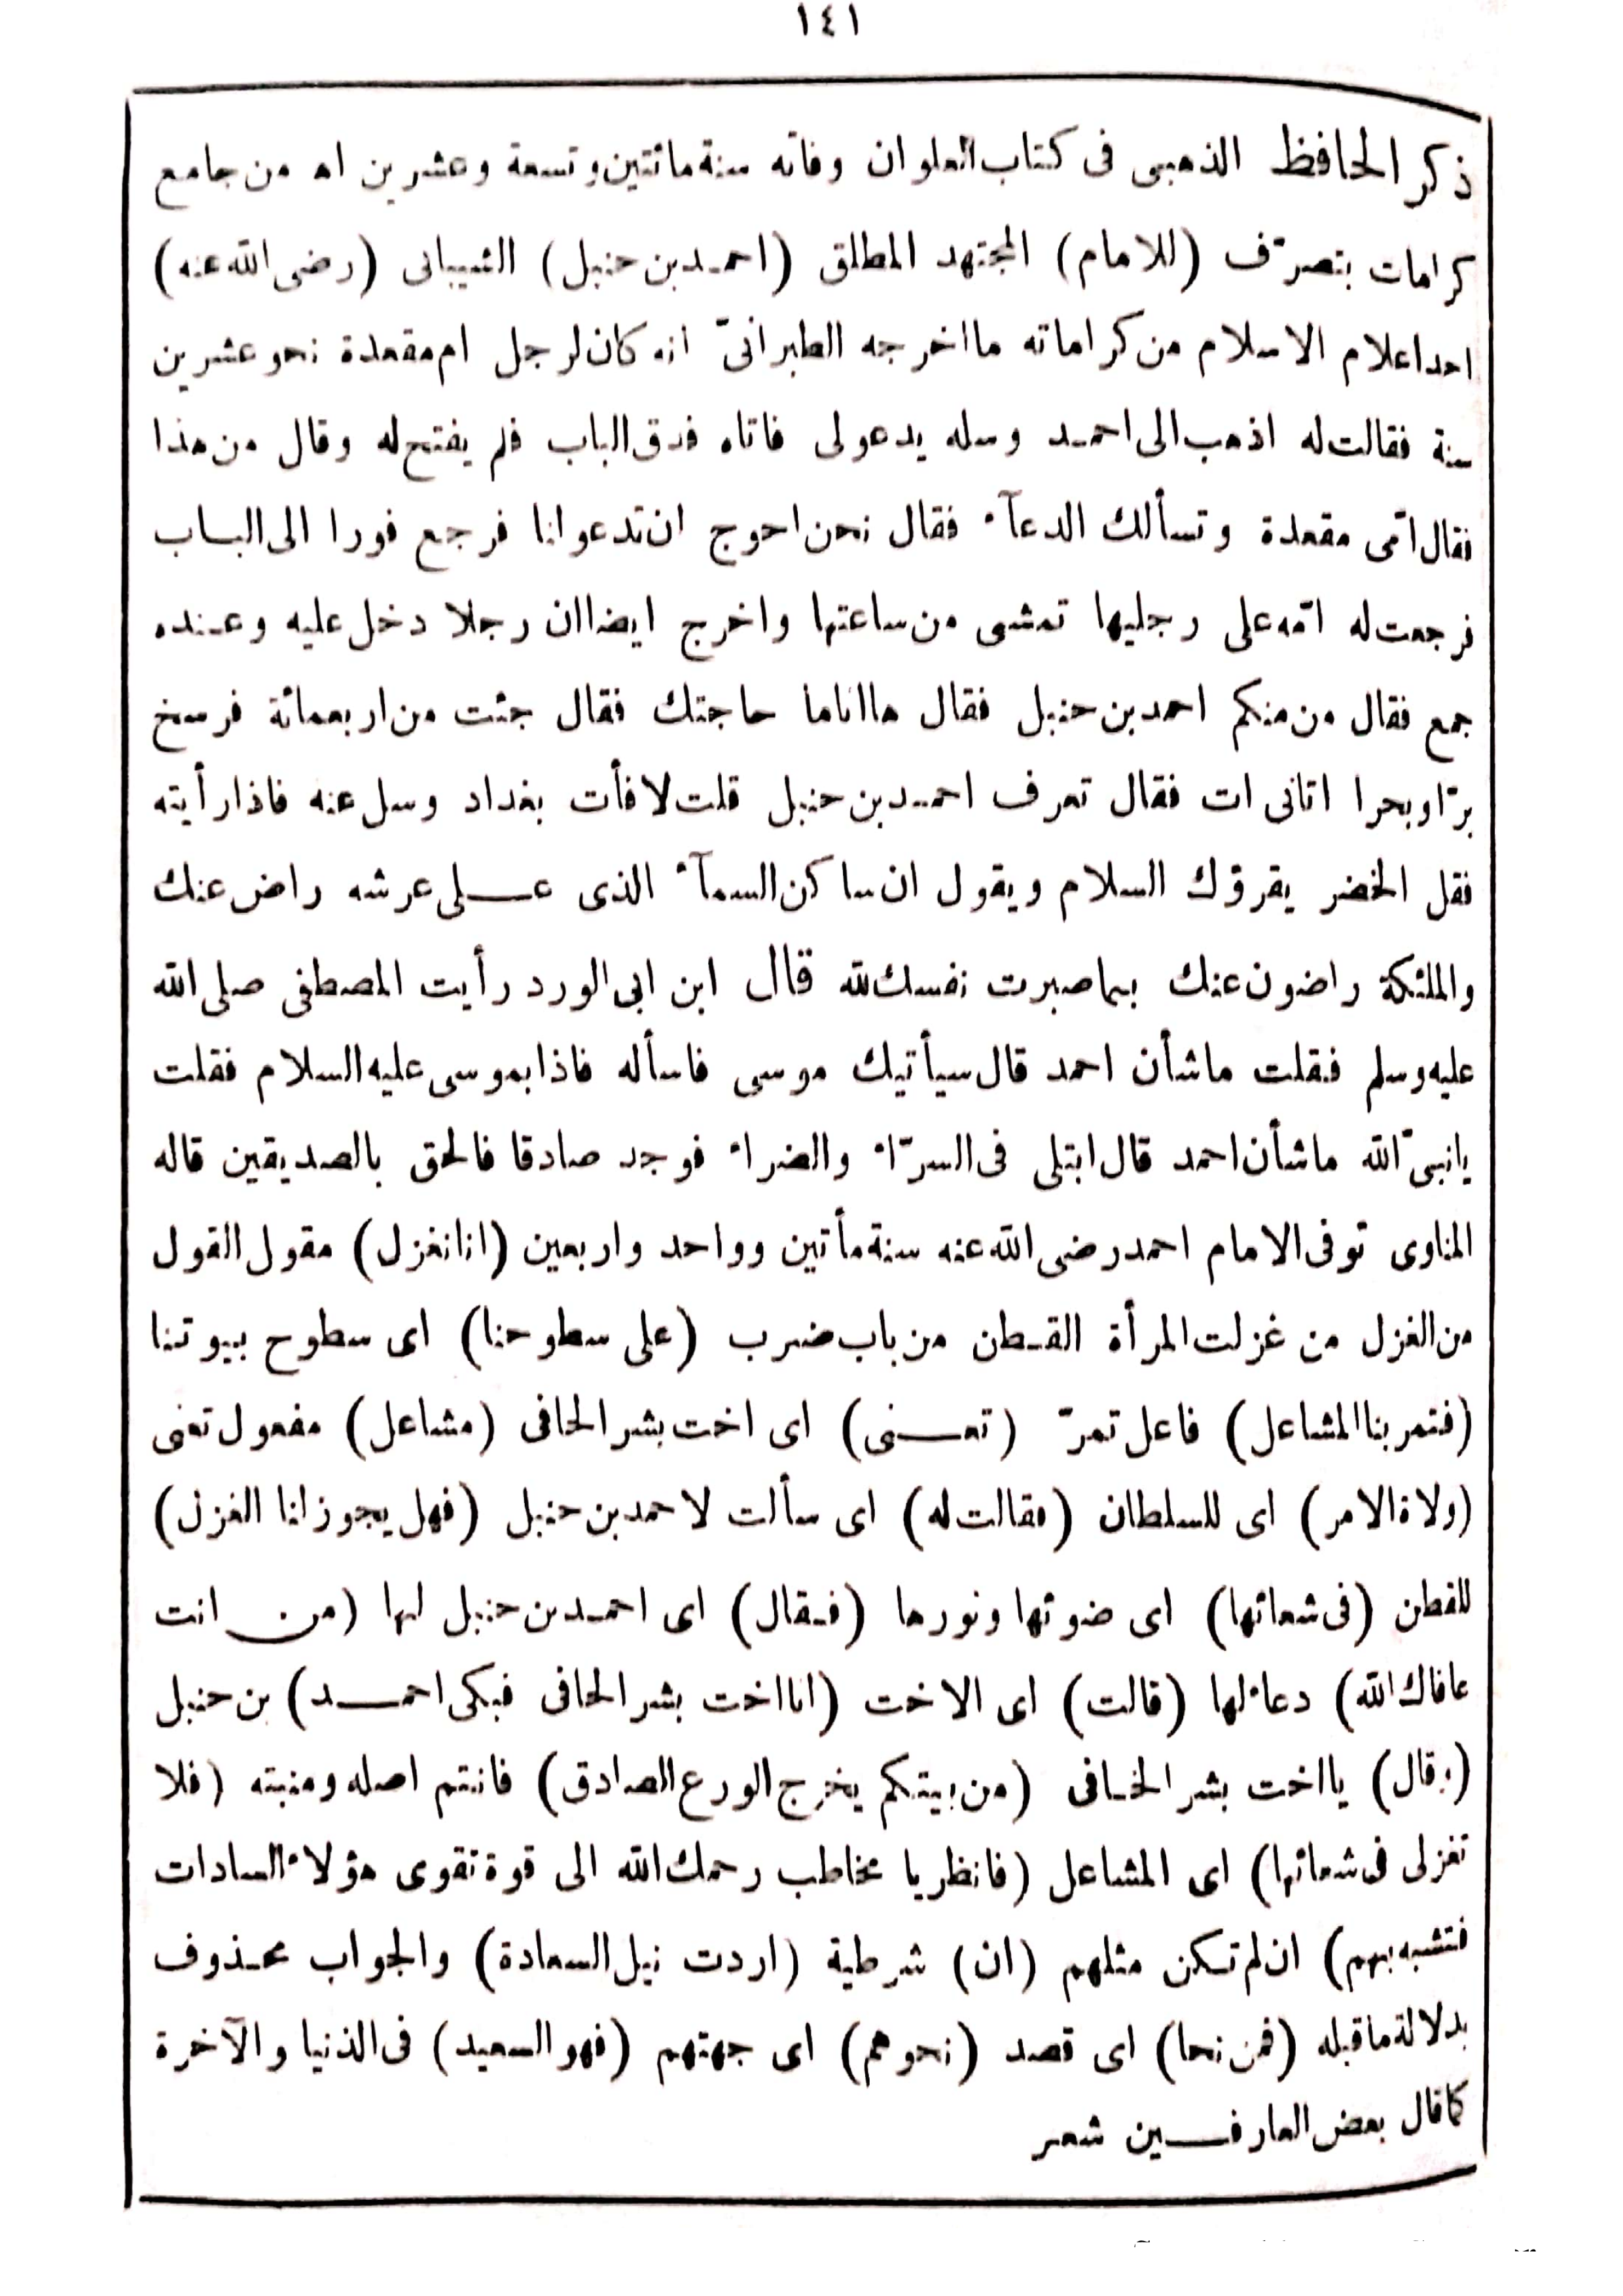 ١٤١
ذكر الحافظ الذهبى فى كتاب العلو ان وفاته سنة مائتين وتسعة وعشرين اه من جامع
كرامات بتصرّف (للامام) المجتهد المطلق (احمد بن حنبل) الشيبانى (رضى الله عنه)
احد اعلام الاسلام من كراماته ما اخرجه الطبرانىّ انه كان لرجل ام مقعدة نحو عشرين
سنة فقالت له اذهب الى احمد وسله يدعو لى فاتاه فدق الباب فلم يفتح له وقال من هذا
فقال امّى مقعدة وتسألك الدعآء فقال نحن احوج ان تدعو انا فرجع فورا الى الباب
فرجعت له امّه على رجليها تمشى من ساعتها واخرج ايضا ان رجلا دخل عليه وعنده
جمع فقال من منكم احمد بن حنبل فقال ها انا ما حاجتك فقال جئت من اربعمائة فرسخ
برّا وبحرا اتانى ات فقال تعرف احمد بن حنبل قلت لا فأت بغداد وسل عنه فاذا رأيته
فقل الخضر يقرؤك السلام ويقول ان ساكن السمآء الذى على عرشه راض عنك
والملئكة راضون عنك بما صبرت نفسك لله قال ابن ابى الورد رأيت المصطفى صلى الله
عليه وسلم فقلت ما شأن احمد قال سيأتيك موسى فاسأله فاذا بموسى عليه السلام فقلت
يا نبىّ الله ما شأن احمد قال ابتلى فى السرّاء والضراء فوجد صادقا فالحق بالصديقين قاله
المناوى توفى الامام احمد رضى الله عنه سنة مأتين وواحد واربعين (انا نغزل) مقول القول
من الغزل من غزلت المرأة القطن من باب ضرب (على سطوحنا) اى سطوح بيوتنا
(فتمر بنا المشاعل) فاعل تمرّ (تعنى) اى اخت بشر الحافى (مشاعل) مفعول تعنى
(ولاة الامر) اى للسلطان (فقالت له) اى سألت لاحمد بن حنبل (فهل يجوز لنا الغزل)
للقطن (فى شعائها) اى ضوئها ونورها (فقال) اى احمد بن حنبل لها (من انت
عافاك الله) دعاء لها (قالت) اى الاخت (انا اخت بشر الحافى فبكى احمد) بن حنبل
(وقال) يا اخت بشر الحافى (من بيتكم يخرج الورع الصادق) فانتم اصله ومنبته (فلا
تغزلى فى شعائها) اى المشاعل (فانظر يا مخاطب رحمك الله الى قوة تقوى هؤلاء السادات
فتشبه بهم) ان لم تكن مثلهم (ان) شرطية (اردت نيل السعادة) والجواب محذوف
بدلالة ما قبله (فمن نحا) اى قصد (نحوهم) اى جهتهم (فهو السعيد) فى الدنيا والآخرة
كما قال بعض العارفين شعر